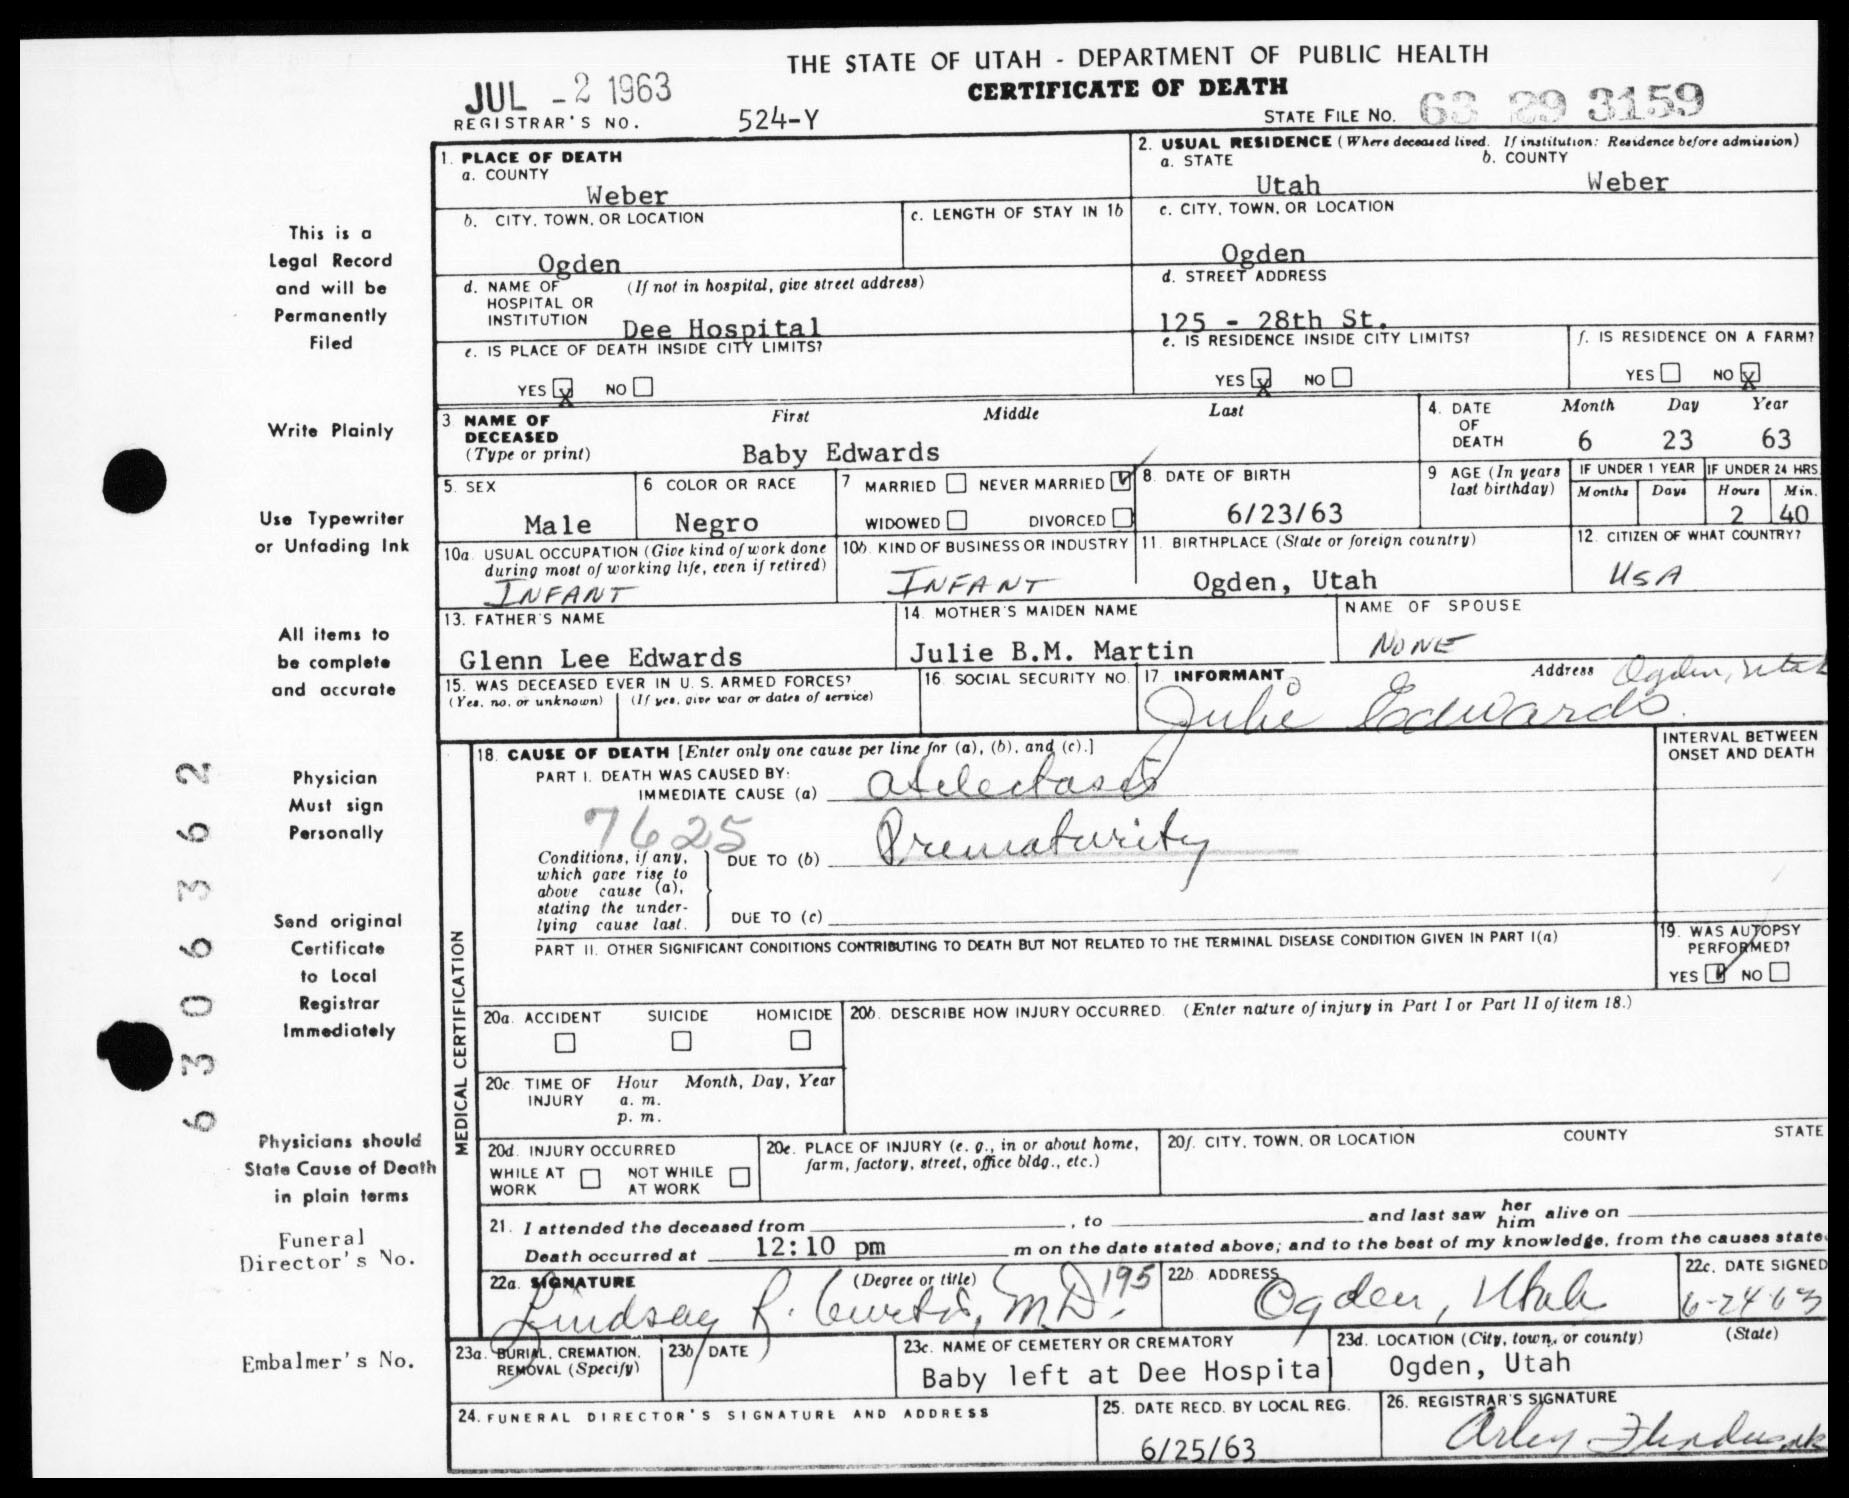 THE STATE OF UTAH - DEPARTMENT OF PUBLIC HEALTH
CERTIFICATE OF DEATH
JUL - 2 1963
REGISTRAR'S NO. 524-Y
STATE FILE NO. 63 29 3159
1. PLACE OF DEATH
a. COUNTY
Weber
2. USUAL RESIDENCE (Where deceased lived. If institution: Residence before admission)
a. STATE b. COUNTY
Utah Weber
b. CITY, TOWN, OR LOCATION
Ogden
c. LENGTH OF STAY IN 1b
c. CITY, TOWN, OR LOCATION
Ogden
d. NAME OF HOSPITAL OR INSTITUTION (If not in hospital, give street address)
Dee Hospital
d. STREET ADDRESS
125 - 28th St.
e. IS PLACE OF DEATH INSIDE CITY LIMITS?
YES X NO
e. IS RESIDENCE INSIDE CITY LIMITS?
YES X NO
f. IS RESIDENCE ON A FARM?
YES NO X
3 NAME OF DECEASED (Type or print)
First Middle Last
Baby Edwards
4. DATE OF DEATH
Month Day Year
6 23 63
5. SEX
Male
6 COLOR OR RACE
Negro
7 MARRIED NEVER MARRIED
WIDOWED DIVORCED
8. DATE OF BIRTH
6/23/63
9 AGE (In years last birthday)
IF UNDER 1 YEAR
Months Days
IF UNDER 24 HRS.
Hours Min.
2 40
10a. USUAL OCCUPATION (Give kind of work done during most of working life, even if retired)
INFANT
10b. KIND OF BUSINESS OR INDUSTRY
INFANT
11. BIRTHPLACE (State or foreign country)
Ogden, Utah
12. CITIZEN OF WHAT COUNTRY?
USA
13. FATHER'S NAME
Glenn Lee Edwards
14. MOTHER'S MAIDEN NAME
Julie B.M. Martin
NAME OF SPOUSE
NONE
15. WAS DECEASED EVER IN U. S. ARMED FORCES?
(Yes, no, or unknown) (If yes, give war or dates of service)
16. SOCIAL SECURITY NO.
17 INFORMANT Address
Ogden, Utah
Julie Edwards.
MEDICAL CERTIFICATION
18. CAUSE OF DEATH [Enter only one cause per line for (a), (b), and (c).]
INTERVAL BETWEEN ONSET AND DEATH
PART I. DEATH WAS CAUSED BY:
IMMEDIATE CAUSE (a) atelectasis
7625
Conditions, if any, which gave rise to above cause (a), stating the underlying cause last.
DUE TO (b) Prematurity
DUE TO (c)
PART II. OTHER SIGNIFICANT CONDITIONS CONTRIBUTING TO DEATH BUT NOT RELATED TO THE TERMINAL DISEASE CONDITION GIVEN IN PART I(a)
19. WAS AUTOPSY PERFORMED?
YES NO
20a. ACCIDENT SUICIDE HOMICIDE
20b. DESCRIBE HOW INJURY OCCURRED. (Enter nature of injury in Part I or Part II of item 18.)
20c. TIME OF INJURY Hour Month, Day, Year
a. m.
p. m.
20d. INJURY OCCURRED
WHILE AT WORK NOT WHILE AT WORK
20e. PLACE OF INJURY (e. g., in or about home, farm, factory, street, office bldg., etc.)
20f. CITY, TOWN, OR LOCATION COUNTY STATE
21. I attended the deceased from , to and last saw her him alive on
Death occurred at 12:10 pm m on the date stated above; and to the best of my knowledge, from the causes state
22a. SIGNATURE (Degree or title)
Lindsay R. Curtis, M.D. 195
22b. ADDRESS
Ogden, Utah
22c. DATE SIGNED
6-24-63
23a. BURIAL, CREMATION, REMOVAL (Specify)
23b. DATE
23c. NAME OF CEMETERY OR CREMATORY
Baby left at Dee Hospital
23d. LOCATION (City, town, or county) (State)
Ogden, Utah
24. FUNERAL DIRECTOR'S SIGNATURE AND ADDRESS
25. DATE RECD. BY LOCAL REG.
6/25/63
26. REGISTRAR'S SIGNATURE
This is a
Legal Record
and will be
Permanently
Filed
Write Plainly
Use Typewriter
or Unfading Ink
All items to
be complete
and accurate
Physician
Must sign
Personally
Send original
Certificate
to Local
Registrar
Immediately
Physicians should
State Cause of Death
in plain terms
Funeral
Director's No.
Embalmer's No.
6306362